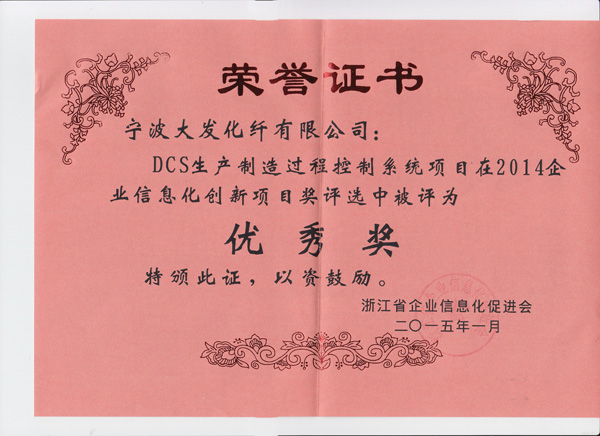 荣誉证书
宁波大发化纤有限公司：
DCS生产制造过程控制系统项目在2014企
业信息化创新项目奖评选中被评为
优秀奖
特颁此证，以资鼓励。
浙江省企业信息化促进会
二〇一五年一月